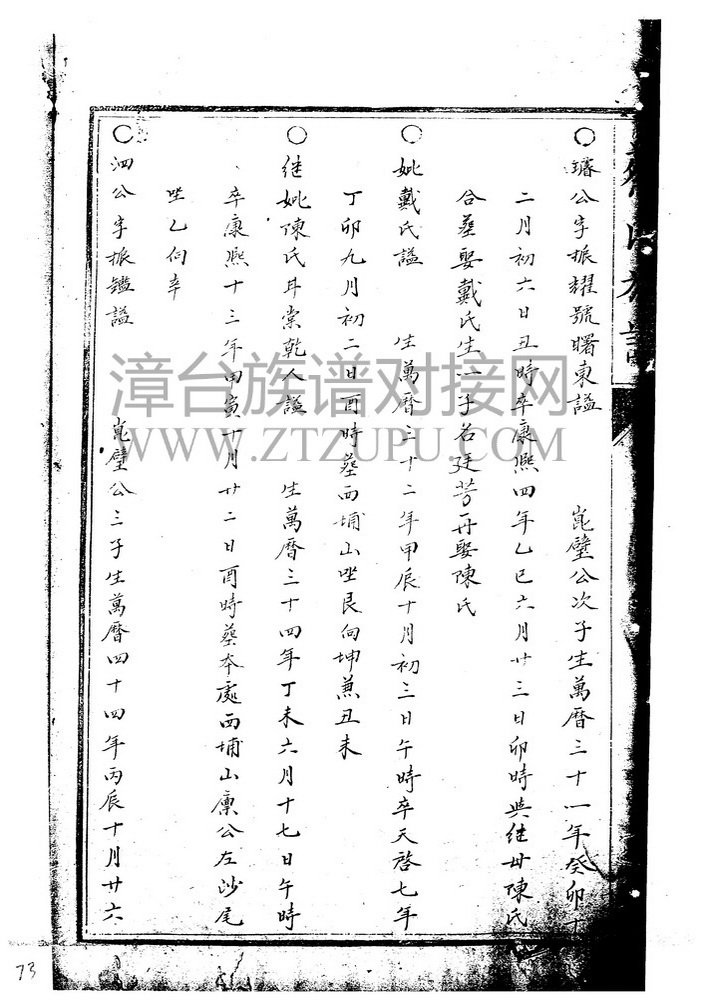 ○璿公字振耀號曙東謚 崑璧公次子生萬曆三十一年癸卯十
二月初六日丑時卒康熙四年乙巳六月廿三日卯時與继毋陳氏
合塟娶戴氏生一子名廷芳再娶陳氏
○妣戴氏謚 生萬曆三十二年甲辰十月初三日午時卒天啓七年
丁卯九月初二日酉時塟西埔山坐艮向坤兼丑未
○继妣陳氏丼棠乾人謚 生萬曆三十四年丁未六月十七日午時
卒康熙十三年甲寅十月廿二日酉時塟本處西埔山廩公左沙尾
坐乙向辛
○泗公字振鑑謚 崑璧公三子生萬曆四十四年丙辰十月廿六
漳台族谱对接网
WWW.ZTZUPU.COM
73